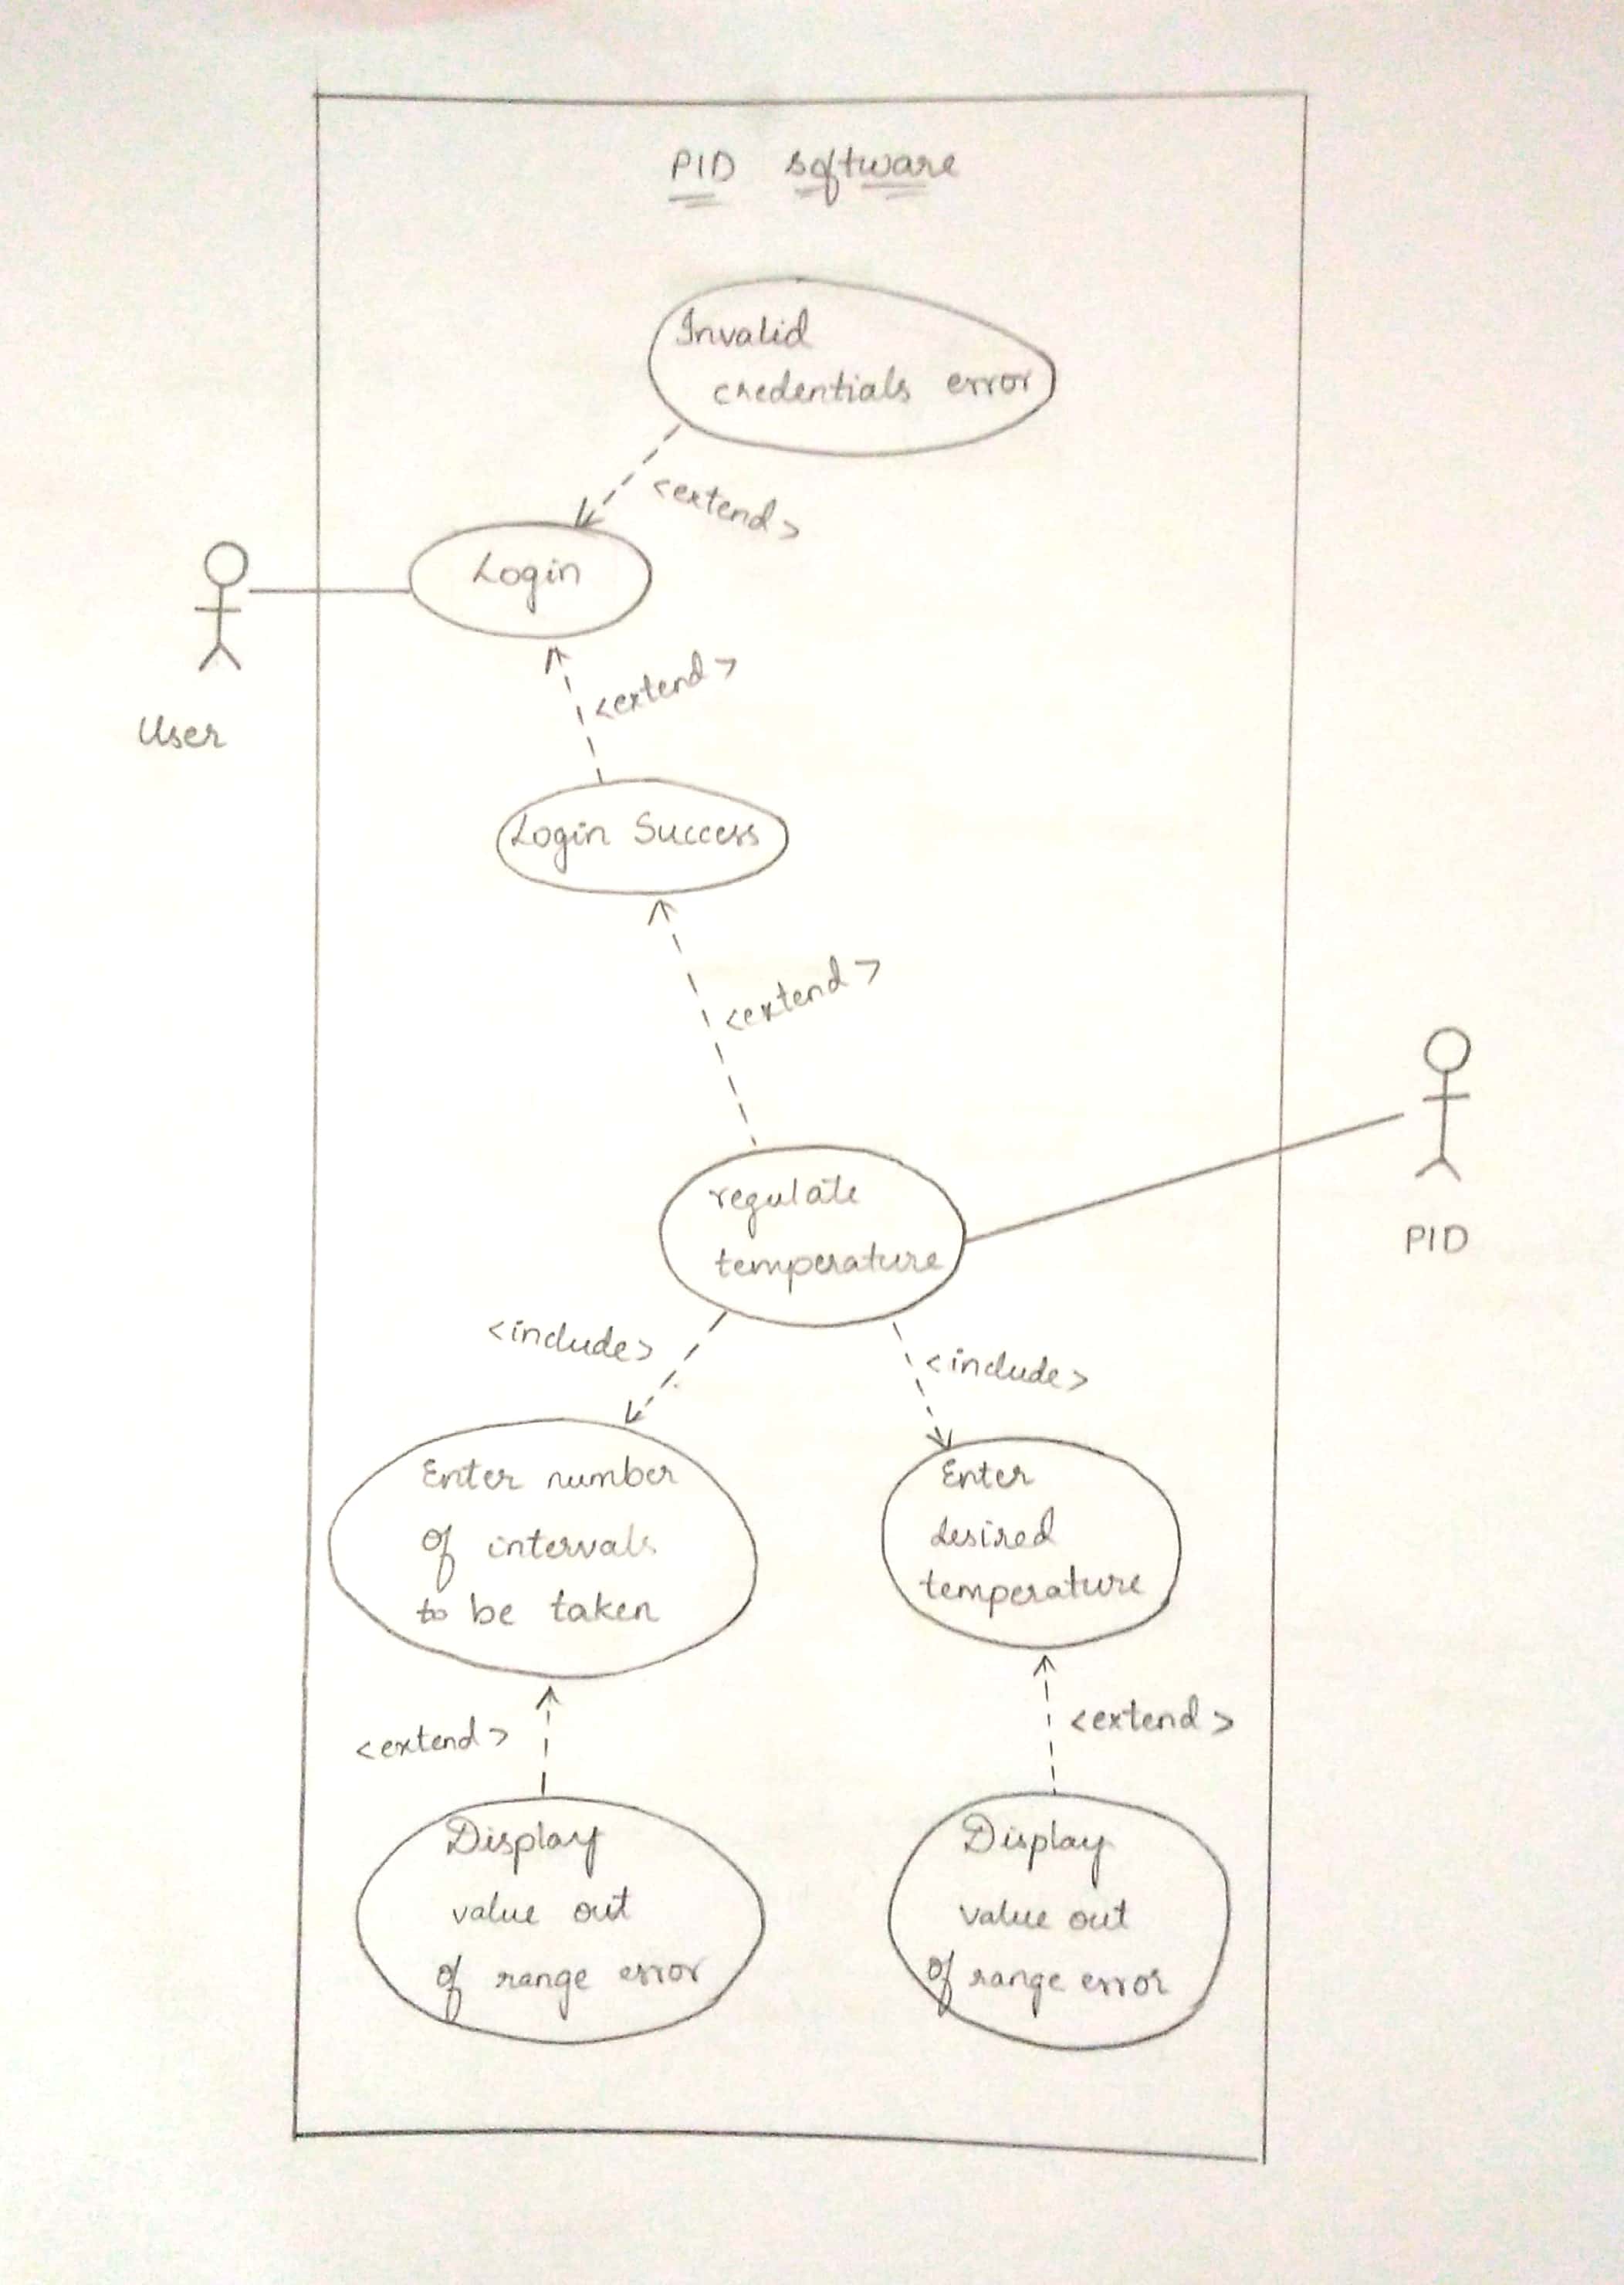 PID software
Invalid
credentials error
<extend>
Login
User
<extend>
Login Success
<extend>
PID
regulate
temperature
<include>
<include>
Enter number
of intervals
to be taken
Enter
desired
temperature
<extend>
<extend>
Display
value out
of range error
Display
value out
of range error